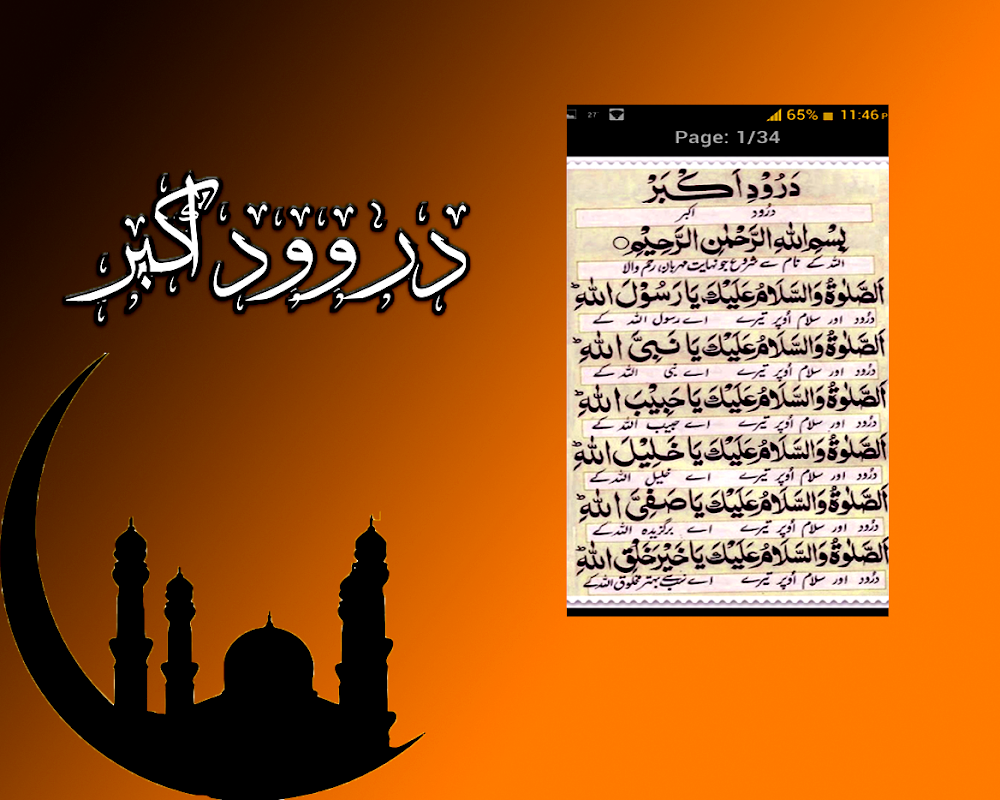 دروود اکبر
27°
65% 11:46 P
Page: 1/34
دَرُوْدِ اَكْبَرْ
درُود اکبر
بِسْمِ اللهِ الرَّحْمٰنِ الرَّحِيْمِ
اللہ کے نام سے شروع جو نہایت مہربان رحم والا
اَلصَّلٰوةُ وَالسَّلَامُ عَلَيْكَ يَا رَسُوْلَ اللهِ ؕ
درُود اور سلام اُوپر تیرے اے رسول اللہ کے
اَلصَّلٰوةُ وَالسَّلَامُ عَلَيْكَ يَا نَبِىَّ اللهِ ؕ
درُود اور سلام اُوپر تیرے اے نبی اللہ کے
اَلصَّلٰوةُ وَالسَّلَامُ عَلَيْكَ يَا حَبِيْبَ اللهِ ؕ
درُود اور سلام اُوپر تیرے اے حبیب اللہ کے
اَلصَّلٰوةُ وَالسَّلَامُ عَلَيْكَ يَا خَلِيْلَ اللهِ ؕ
درُود اور سلام اُوپر تیرے اے خلیل اللہ کے
اَلصَّلٰوةُ وَالسَّلَامُ عَلَيْكَ يَا صَفِىَّ اللهِ ؕ
درُود اور سلام اُوپر تیرے اے برگزیدہ اللہ کے
اَلصَّلٰوةُ وَالسَّلَامُ عَلَيْكَ يَا خَيْرَ خَلْقِ اللهِ ؕ
درُود اور سلام اُوپر تیرے اے سب سے بہتر مخلوق اللہ کے